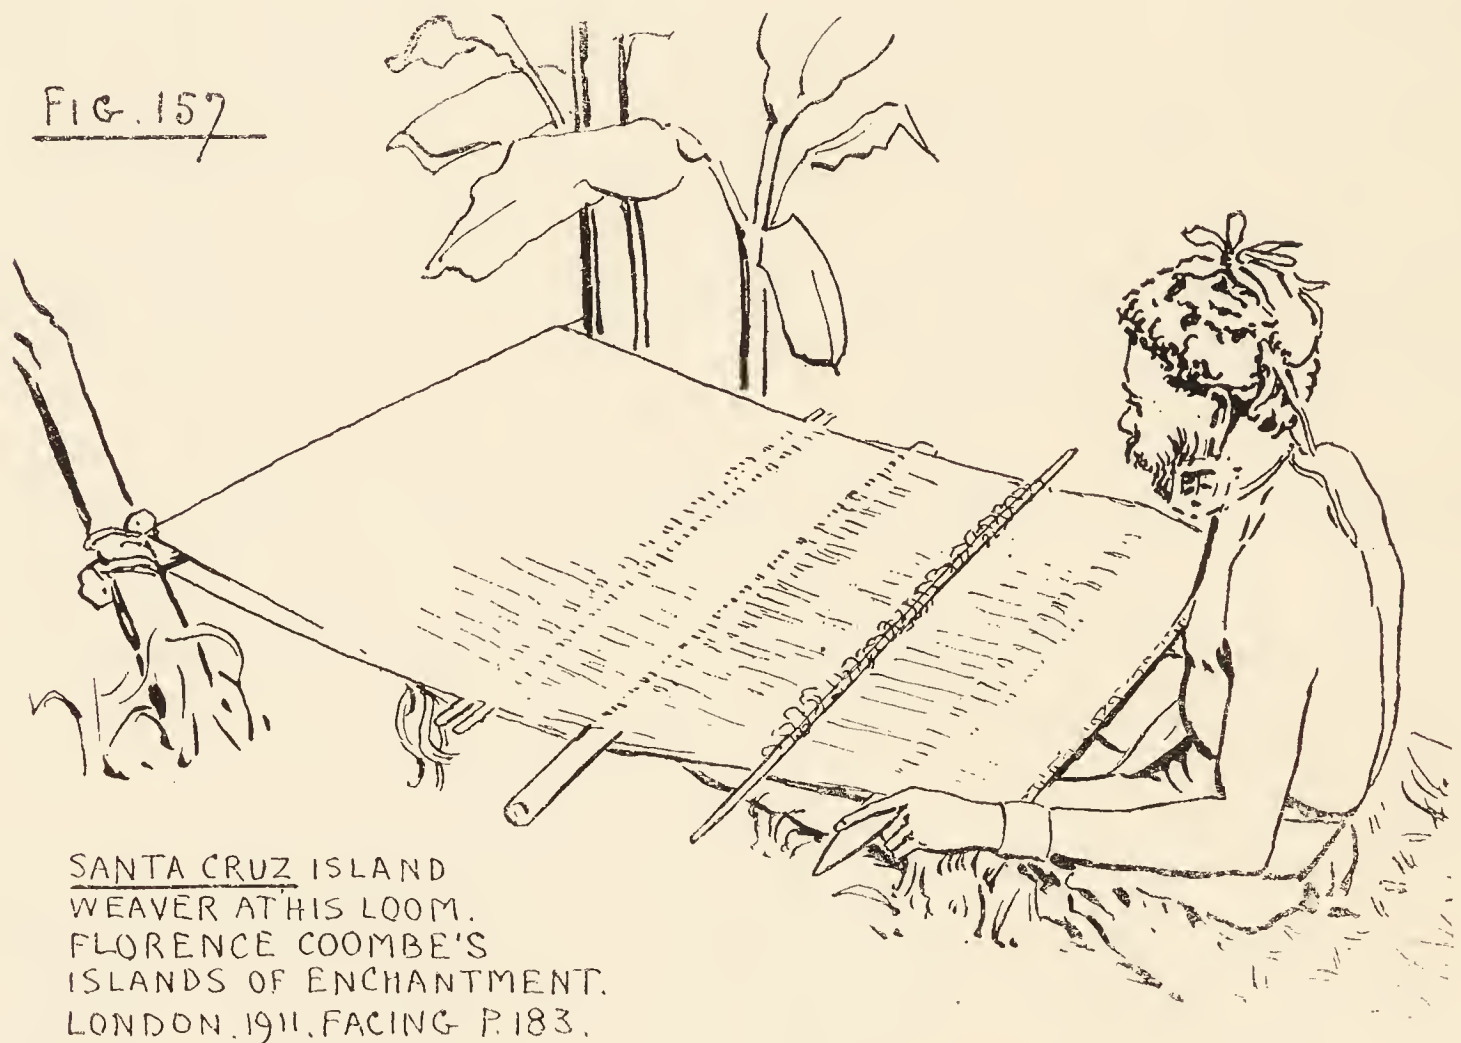 FIG. 157
SANTA CRUZ ISLAND
WEAVER AT HIS LOOM.
FLORENCE COOMBE'S
ISLANDS OF ENCHANTMENT.
LONDON. 1911. FACING P. 183.